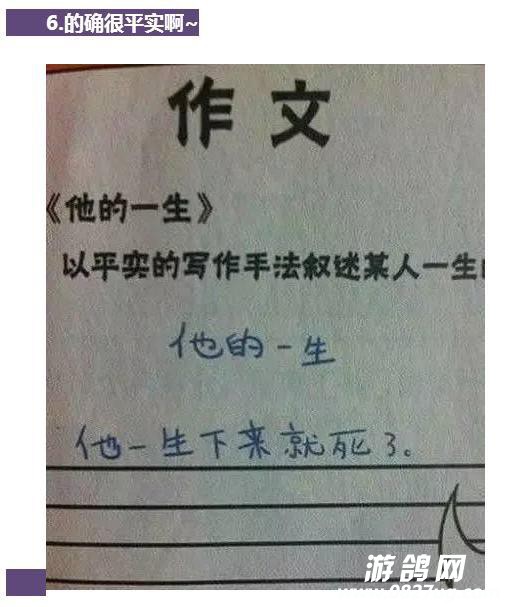 6.的确很平实啊~
作文
《他的一生》
以平实的写作手法叙述某人一生的
他的一生
他一生下来就死了。
游鸽网